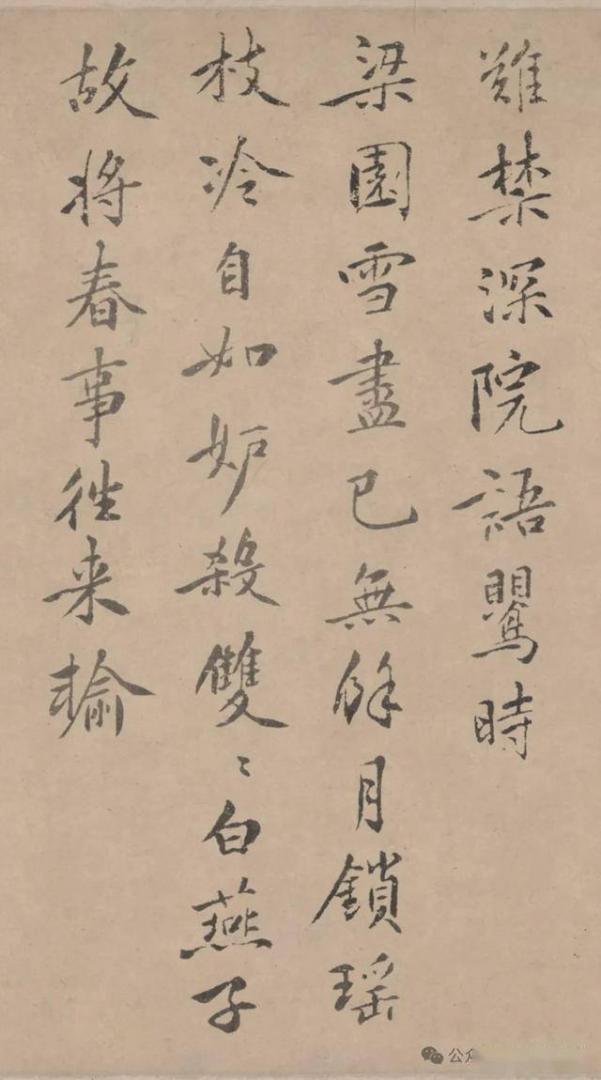 難禁深院語鸎時
梁園雪盡已無餘月鎖瑤
枝冷自如妒殺雙〻白燕子
故將春事徃来輸
公